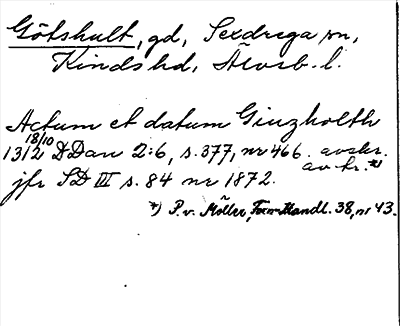 Götshult, gd, Sexdrega sn,
Kinds hd, Älvsb. l.
Actum et datum Giuzholth
18/10
1312 DDan 2:6, s. 377, nr 466. avskr.
av tr. *)
jfr SD III s. 84 nr 1872.
*) P. v. Möller, Handl. 38, nr 43.